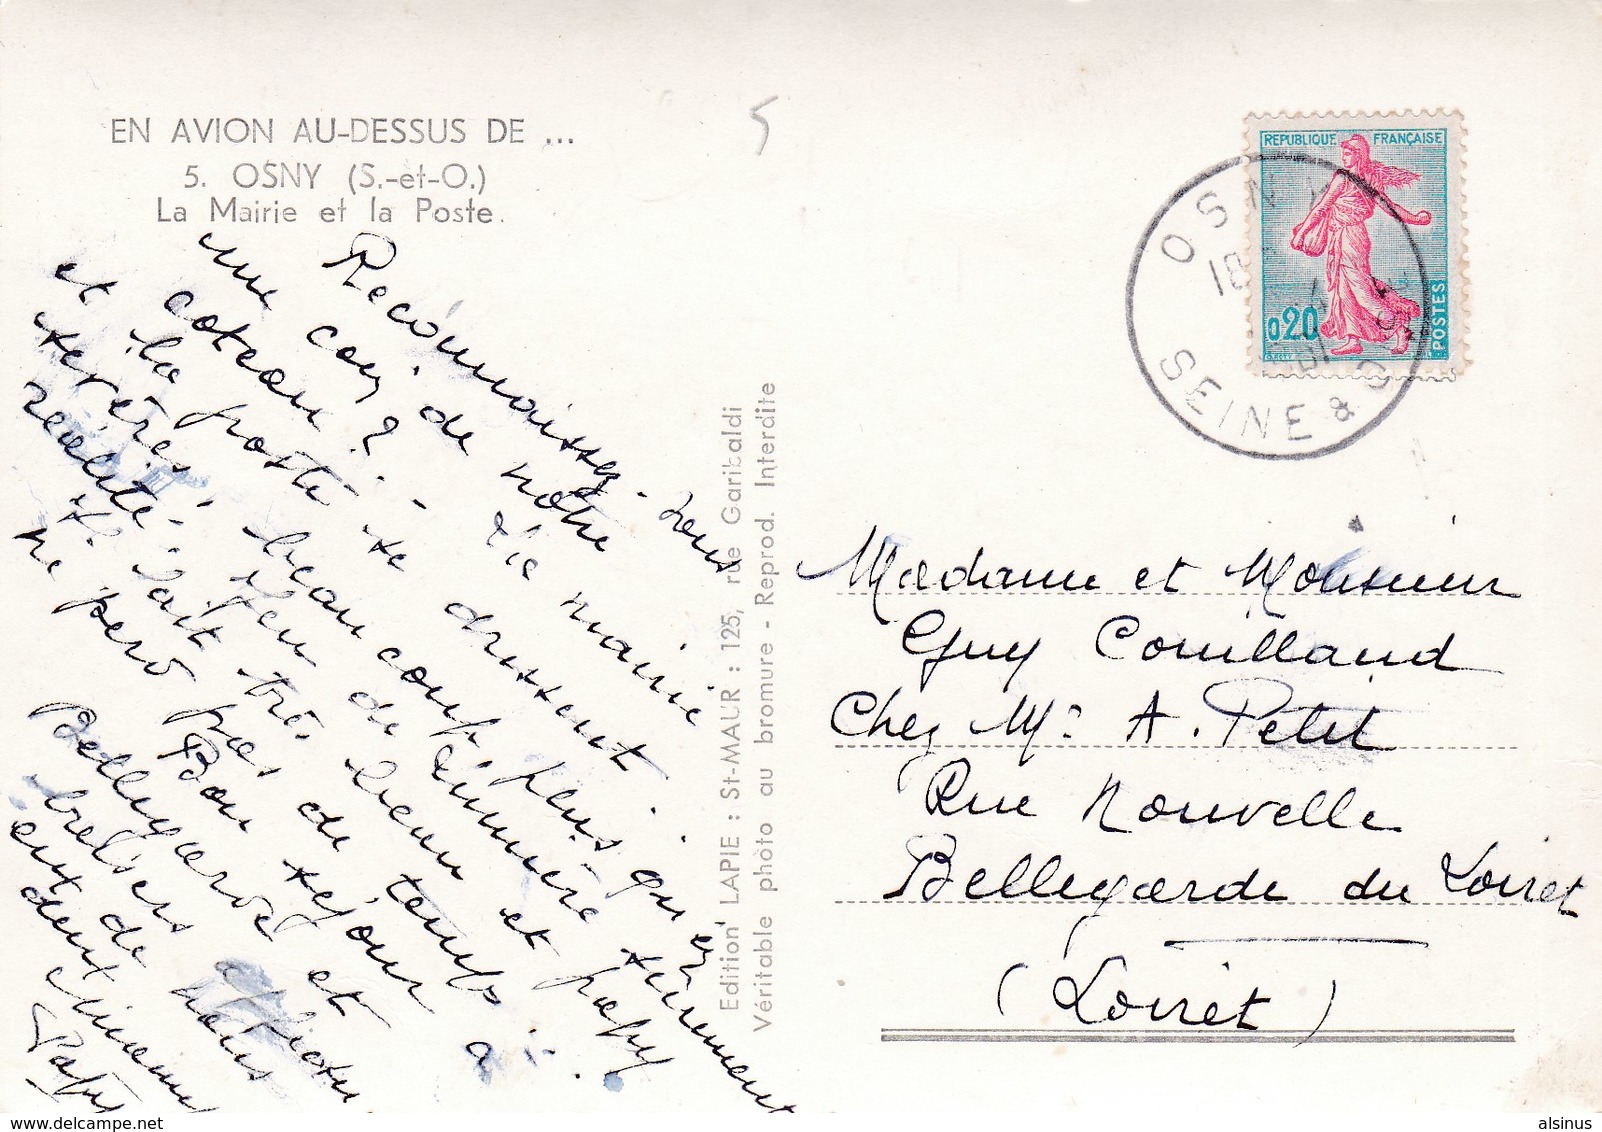 EN AVION AU-DESSUS DE ...
5. OSNY (S.-et-O.)
La Mairie et la Poste.
5
Reconnaissez-vous
un coin de notre
coteau ? La mairie
et la poste se dressent
serrées, beaucoup plus qu'en
réalité.
Il fait très beau et
ne perd pas de temps à
Bon séjour à
Bellegarde et
baisers affectueux
de nous
deux
Papy
Edition LAPIE : St-MAUR : 125, rue Garibaldi
Véritable photo au bromure - Reprod. Interdite
REPUBLIQUE FRANÇAISE
0,20
POSTES
OSNY
18
SEINE & O
Madame et Monsieur
Guy Couilland
Chez Mr A. Petit
Rue Nouvelle
Bellegarde du Loiret
(Loiret)
delcampe.net
alsinus